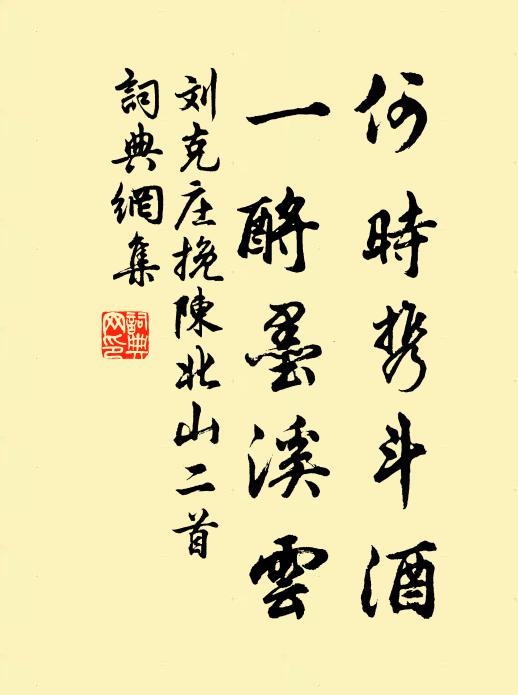 何時携斗酒
一酹墨溪雲
刘克庄挽陳北山二首
詞典網集
詞典
网印